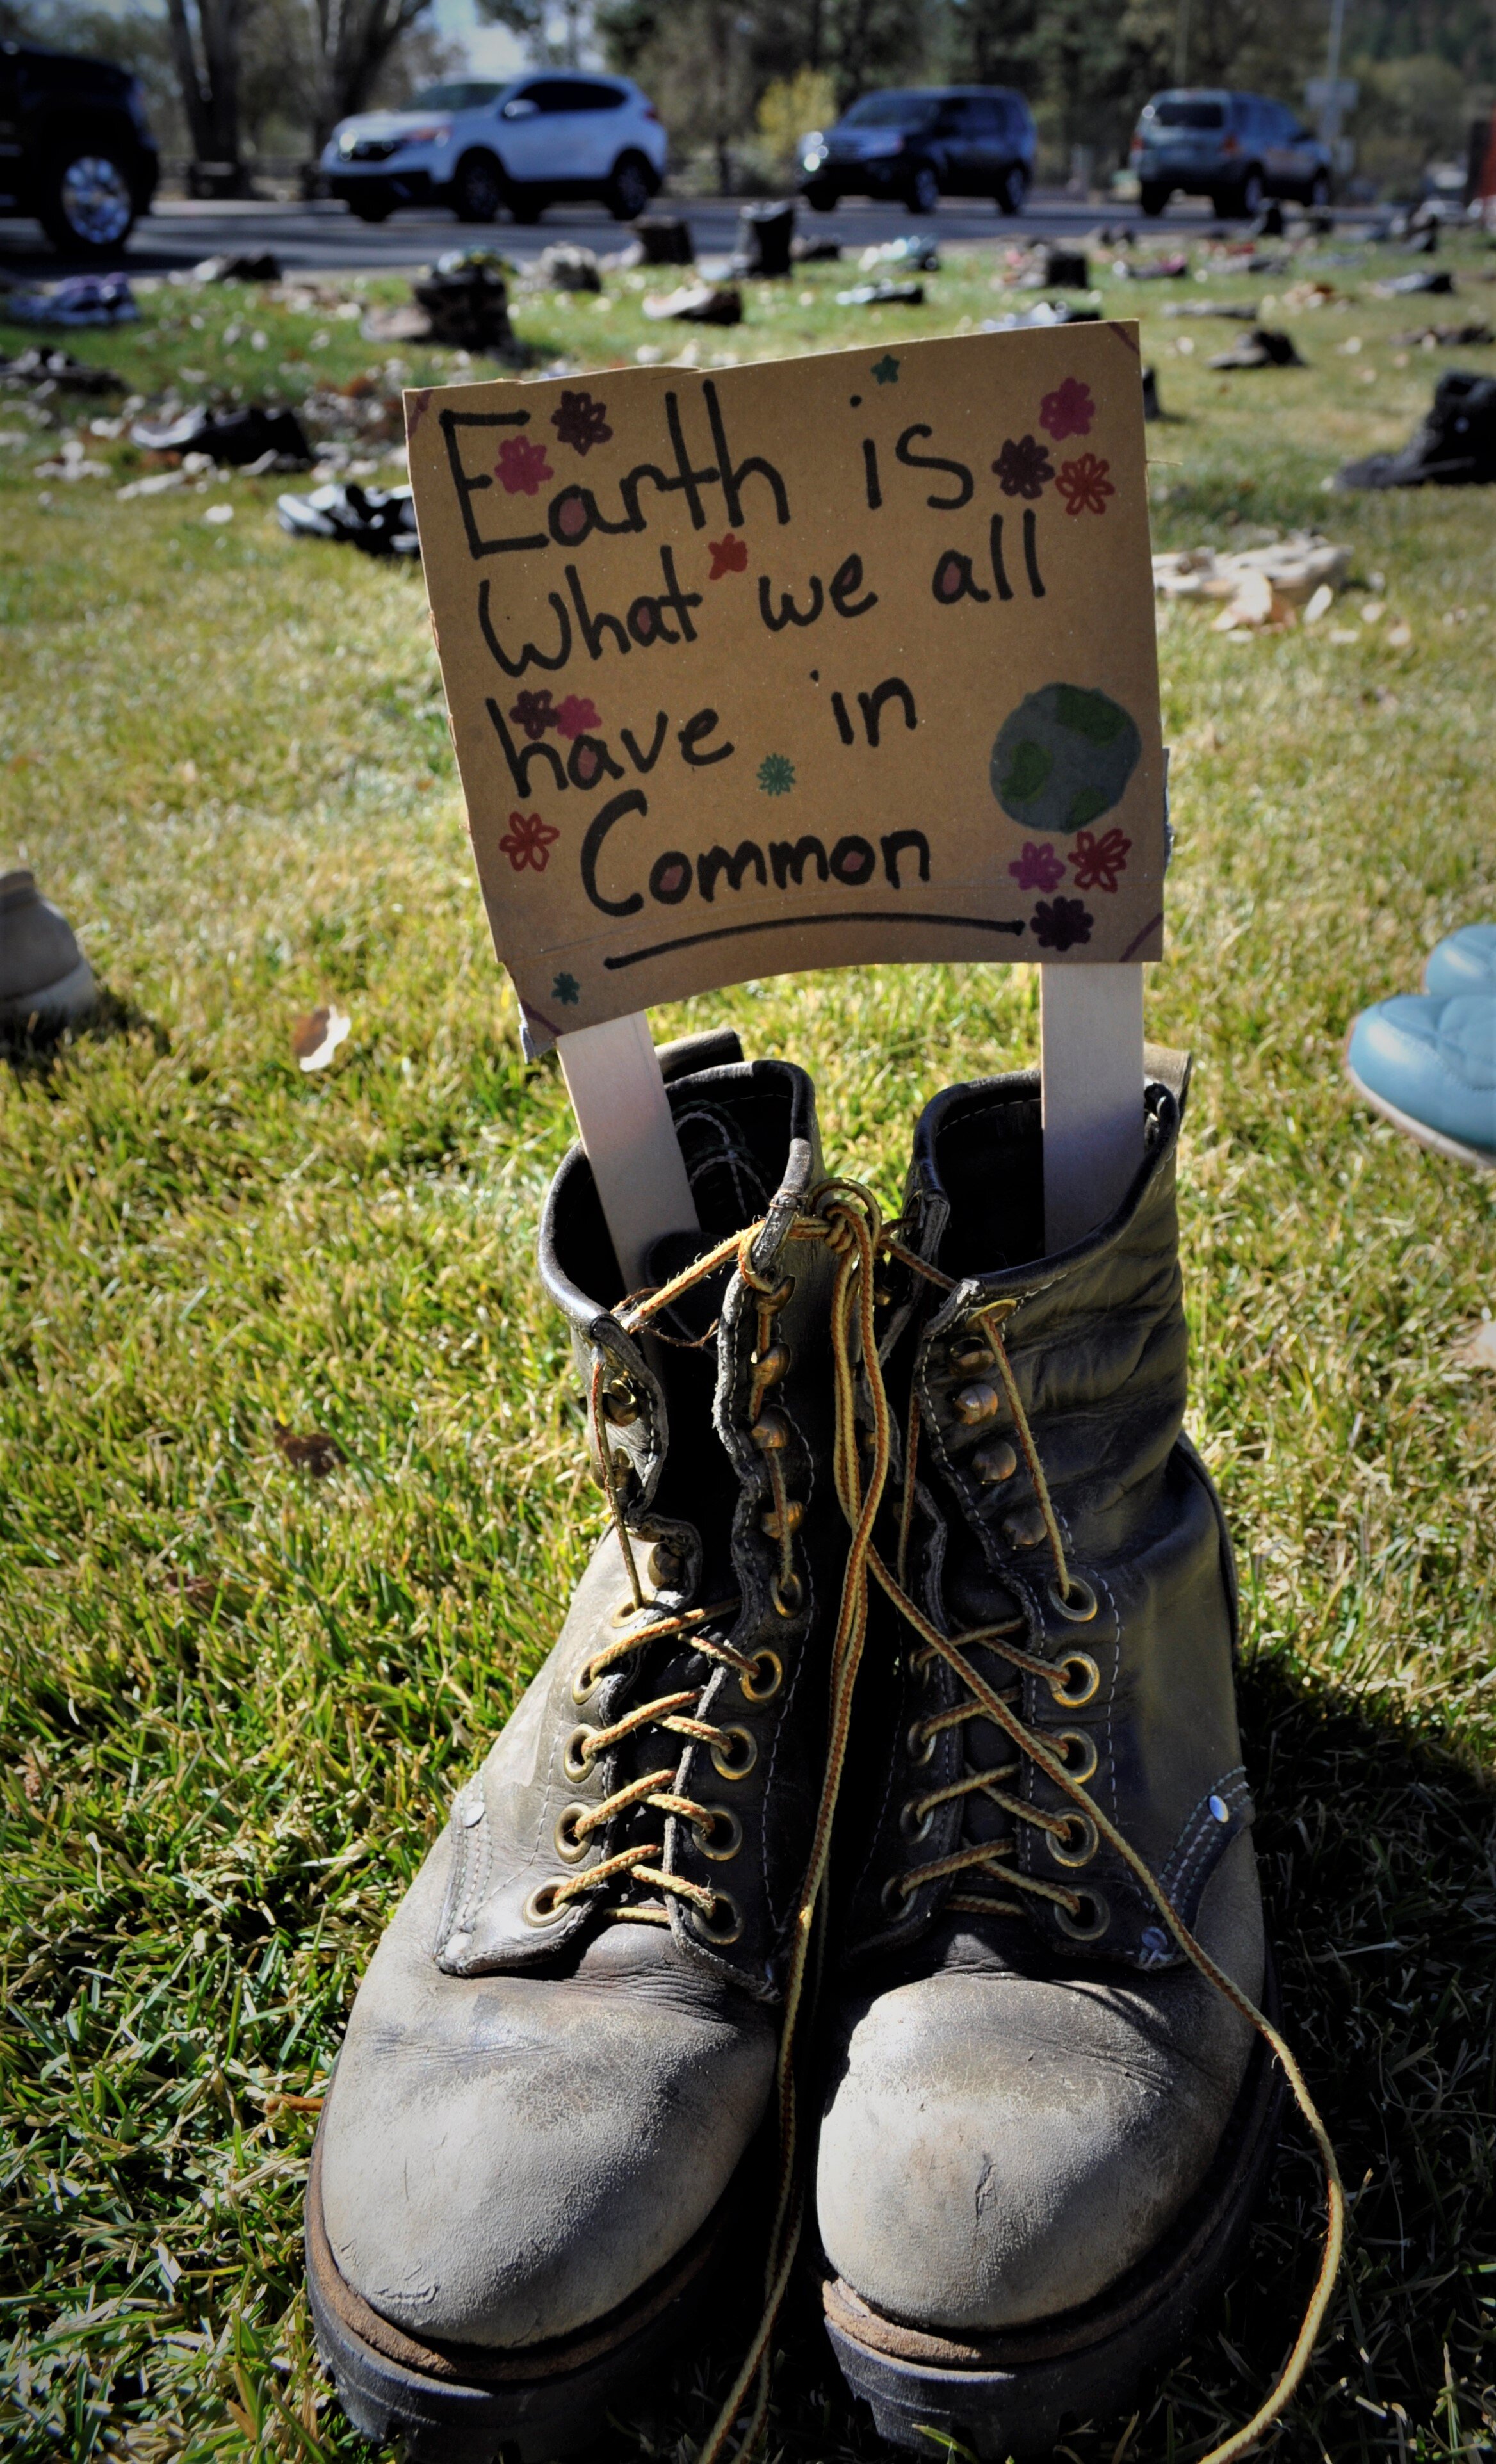 Earth is
What we all
have in
Common